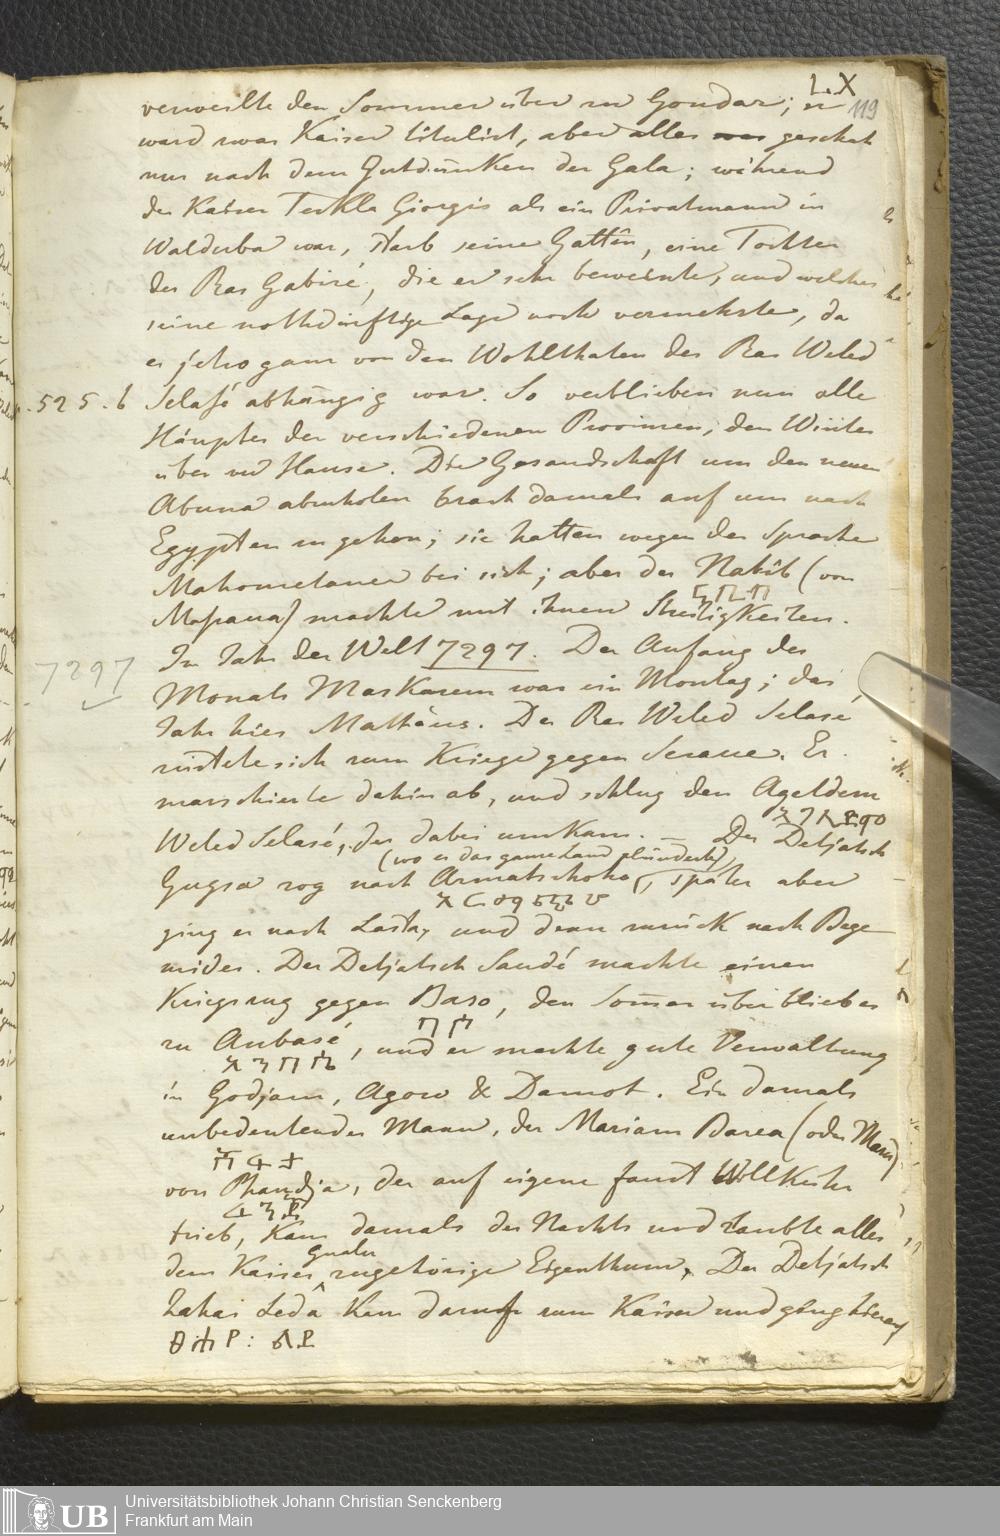 L.X
119
verweilte den Sommer über zu Gondar; er
ward zwar Kaiser titulirt, aber alles geschah
nur nach dem Gutdünken der Gala; während
der Kaiser Tekla Giorgis als ein Privatmann in
Walduba war, starb seine Gattin, eine Tochter
des Ras Gabiré, die er sehr beweinte, und welches
seine nothdürftige Lage noch vermehrte, da
er jetzo ganz von den Wohlthaten des Ras Weled
525. b Selasé abhängig war. So verblieben nun alle
Häupter der verschiedenen Provinzen, den Winter
über zu Hause. Die Gesandschaft um den neuen
Abuna abzuholen brach damals auf um nach
Egypten zu gehen; sie hatten wegen der Sprache
Mahometaner bei sich; aber der Naïb (von
Massaua) machte mit ihnen Streitigkeiten.
7297 Im Jahr der Welt 7297. Der Anfang des
Monats Maskarem war ein Montag; das
Jahr hies Mathäus. Der Ras Weled Selasé
rüstete sich zum Kriege gegen Seraue. Er
marschierte dahin ab, und schlug den Ageldem
Weled Selasé, der dabei umkam. — Der Detjatsch
(wo er das ganze Land plünderte)
Gugsa zog nach Armatschoho, später aber
ging er nach Lasta, und dann zurück nach Bege
mider. Der Detjatsch Saudé machte einen
Kriegszug gegen Baso, den Som̄er über blieb er
zu Anbasé, und er machte gute Verwaltung
in Godjam, Agow & Damot. Ein damals
unbedeutender Mann, der Mariam Barea (oder Maru)
von Phandja, der auf eigene faust
trieb, kam damals des Nachts und raubte alles
dem Kaiser Gualu zugehörige Eigenthum. Der Detjatsch
Zahai Ledâ kam darauf zum Kaiser und ging hierauf